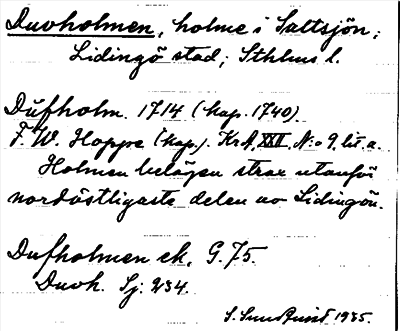 Duvholmen, holme i Saltsjön;
Lidingö stad; Sthlms l.
Dufholm. 1714 (kap. 1740).
F. W. Hoppe (kap.). KrA, XXII, N:o 9. lit. a.
Holmen belägen strax utanför
nordöstligaste delen av Lidingön.
Dufholmen ek. G. 75.
Duvh. Sj: 234.
S. Sundquist 1935.